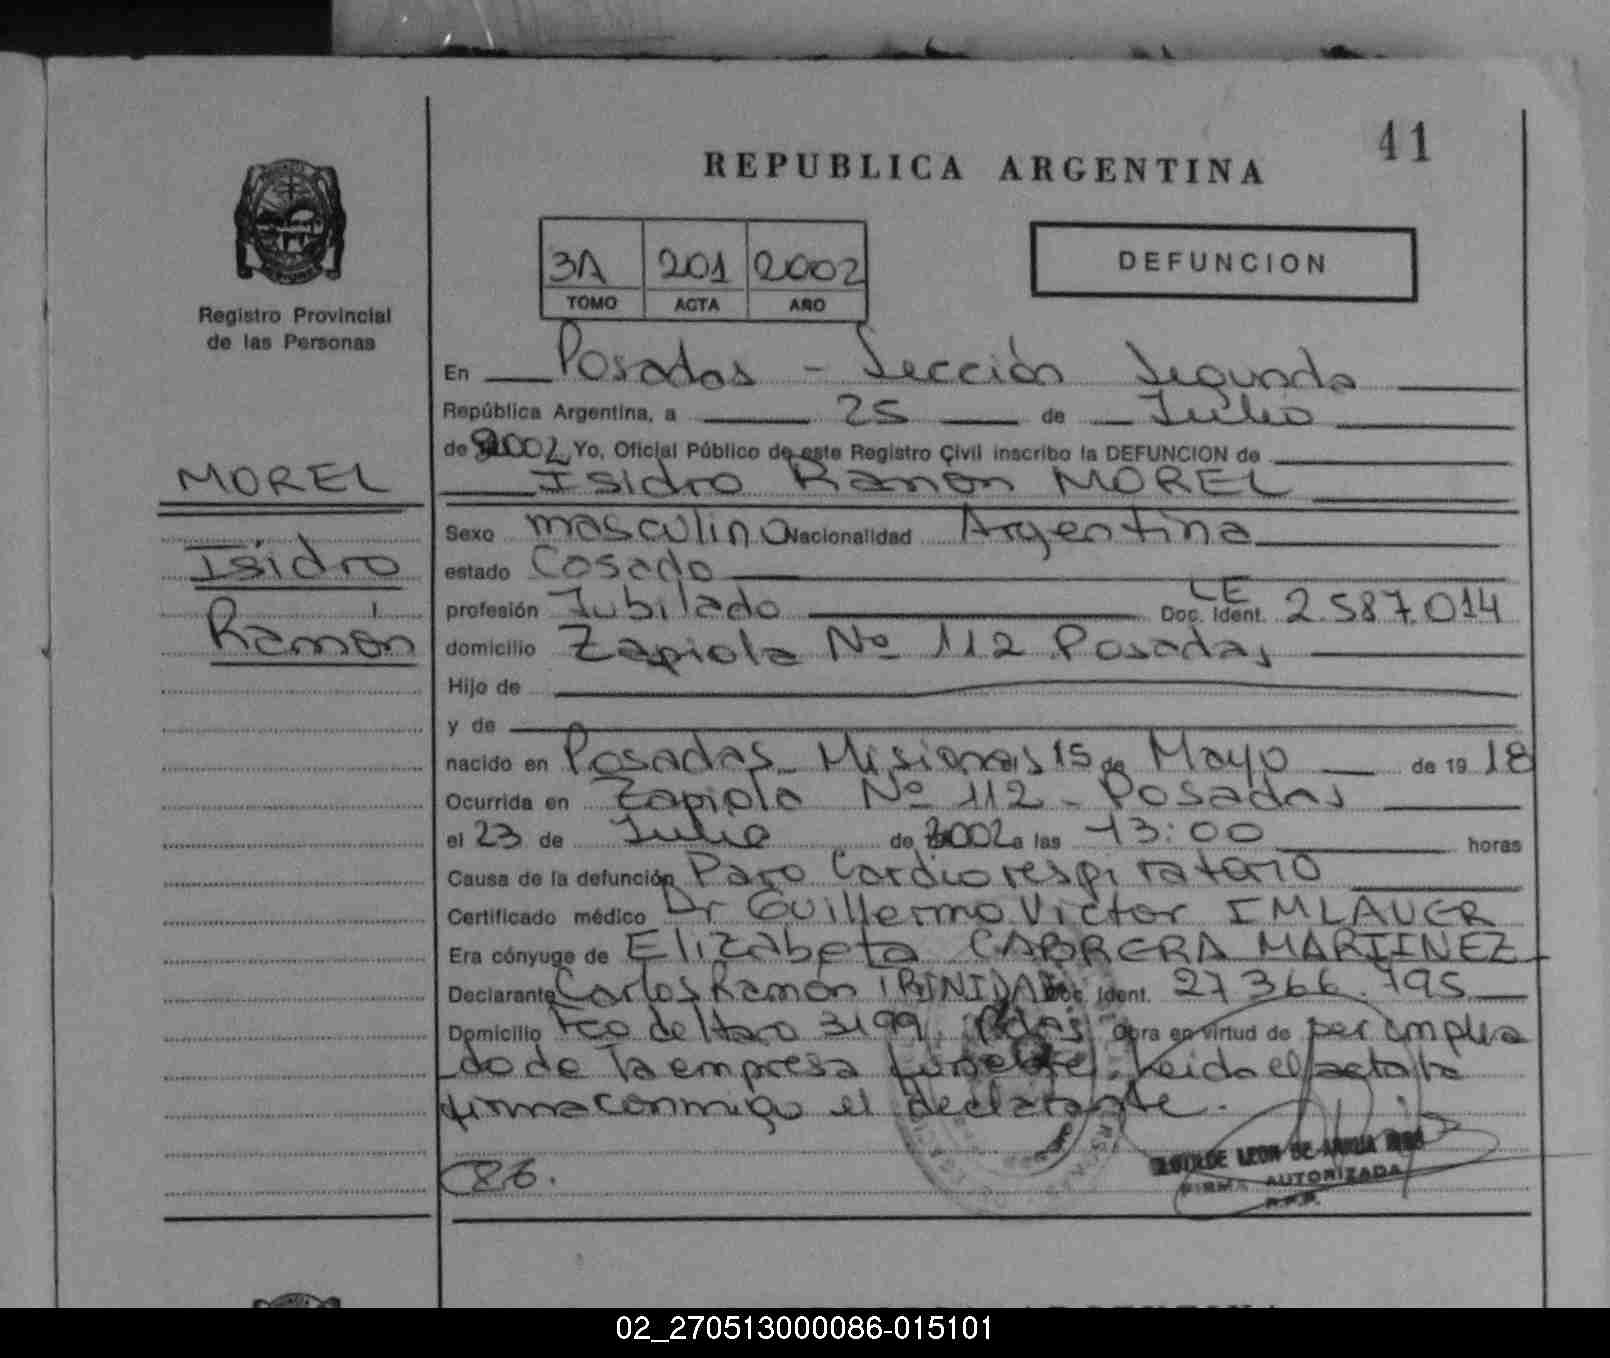 41
REPUBLICA ARGENTINA
3A 201 2002
TOMO ACTA AÑO
DEFUNCION
Registro Provincial
de las Personas
MOREL
Isidro
Ramón
En Posadas - Sección Segunda
República Argentina, a 25 de Julio
de 2002 Yo, Oficial Público de este Registro Civil inscribo la DEFUNCION de
Isidro Ramon MOREL
Sexo masculino Nacionalidad Argentina
estado Casado
profesión Jubilado Doc. Ident. LE 2.587.014
domicilio Zapiola Nº 112 Posadas
Hijo de
y de
nacido en Posadas Misiones 15 de Mayo de 19 18
Ocurrida en Zapiola Nº 112 - Posadas
el 23 de Julio de 2002 a las 13:00 horas
Causa de la defunción Paro Cardiorespiratorio
Certificado médico Dr Guillermo Victor IMLAUER
Era cónyuge de Elizabeta CABRERA MARTINEZ
Declarante Carlos Ramón TRINIDAD Doc. Ident. 27 366.795
Domicilio Fco de Haro 3199, Pdas Obra en virtud de ser emplea
do de la empresa fúnebre. Leida el acta la
firma conmigo el declarante.
86.
LEON DE
FIRMA AUTORIZADA
R.P.P.
02_270513000086-015101